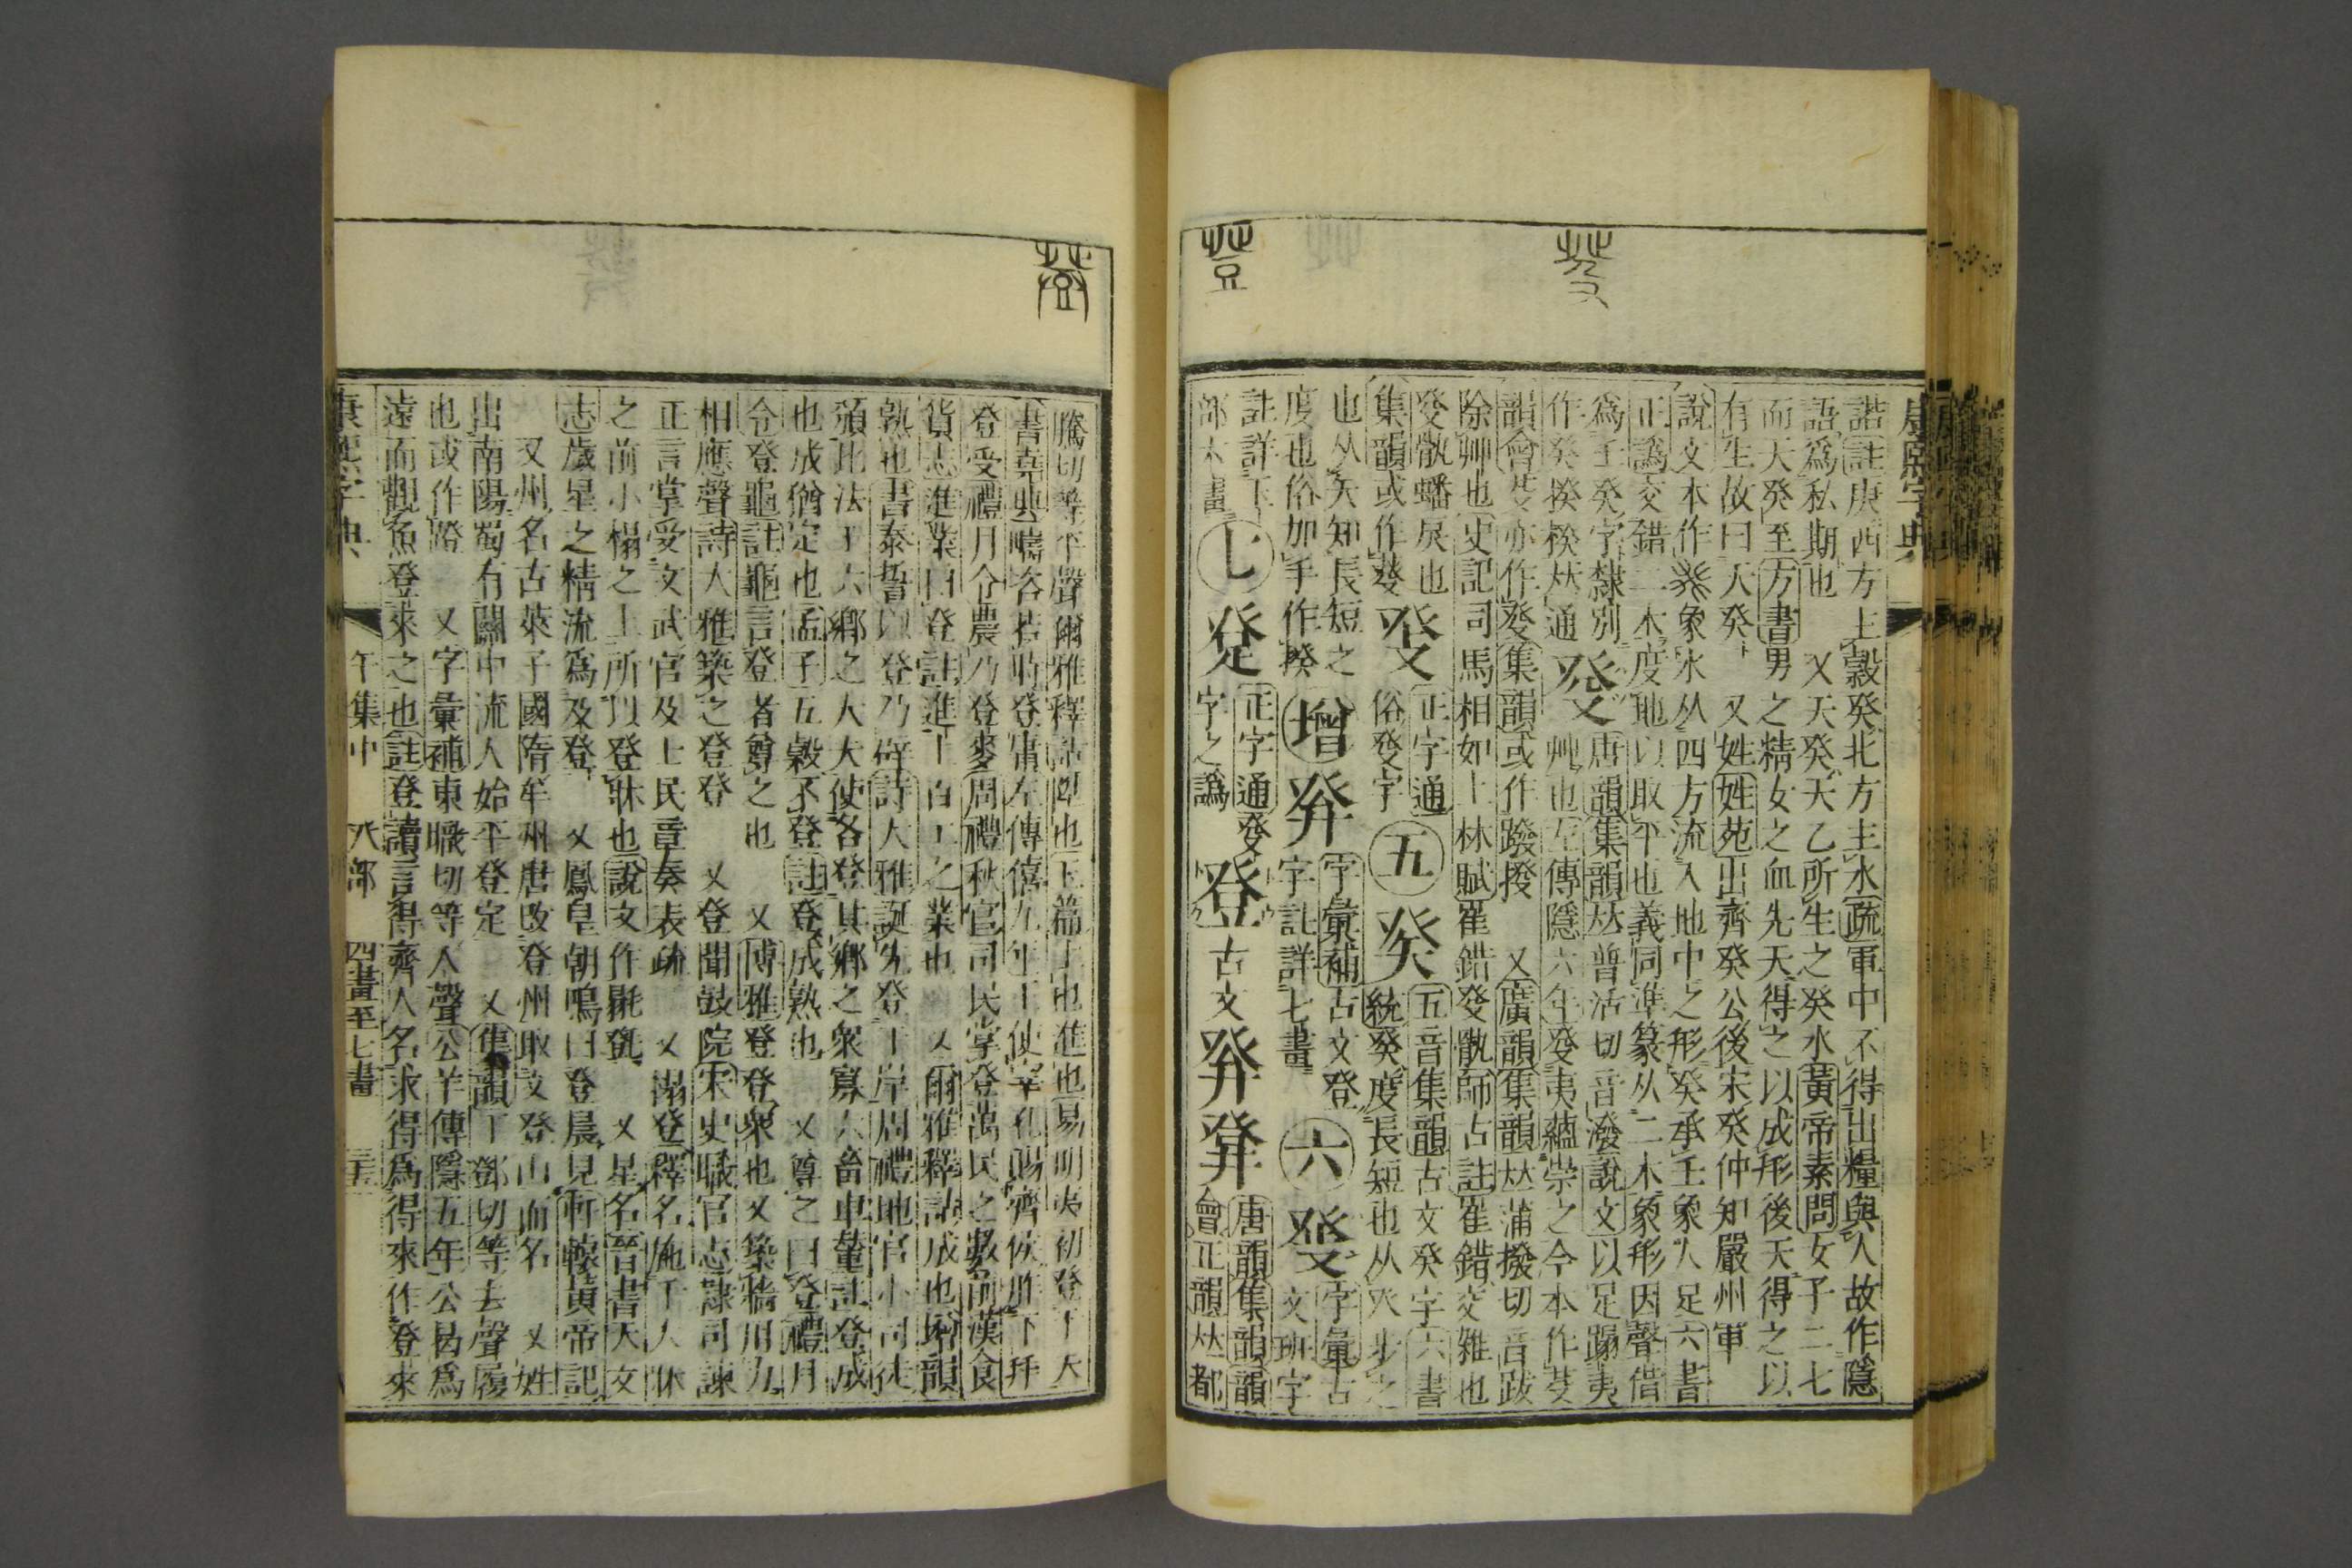 諮註庚西方主穀癸北方主水疏軍中不得出糧與人故作隱
語爲私期也又天癸天乙所生之癸水黃帝素問女子二七
而天癸至方書男之精女之血先天得之以成形後天得之以
有生故曰天癸又姓姓苑出齊癸公後宋癸仲知嚴州軍
說文本作癸象水从四方流入地中之形癸承壬象人足六書
正譌交錯二木度地以取平也義同準篆从二木象形因聲借
爲壬癸字隸別
作癸揆楑𠀤通
癹
唐韻集韻𠀤普活切音潑說文以足蹋夷
艸也左傳隱六年癹夷蘊崇之今本作芟
韻會癹亦作發集韻或作蹳撥又廣韻集韻𠀤蒲撥切音跋
除艸也史記司馬相如上林賦崔錯癹骫師古註崔錯交雜也
癹骫蟠戾也
集韻或作
正字通
俗癹字
五
五音集韻古文癸字六書
統癸度長短也从癶步之
也从矢知長短之
度也俗加手作揆
增
字彙補古文登
字註詳七畫
六
字彙古
文班字
註詳玉
部木畫
七
正字通發
字之譌
登
古文
唐韻集韻韻
會正韻𠀤都
騰切等平聲爾雅釋詁陞也玉篇上也進也易明夷初登于天
書堯典疇咨若時登庸左傳僖九年王使宰孔賜齊侯胙下拜
登受禮月令農乃登麥周禮秋官司民掌登萬民之數前漢食
貨志進業曰登註進上百工之業也又爾雅釋詁成也增韻
熟也書泰誓以登乃辟詩大雅誕先登于岸周禮地官小司徒
頒比法于六鄉之大夫使各登其鄉之眾寡六畜車輦註登成
也成猶定也孟子五穀不登註登成熟也又尊之曰登禮月
令登龜註龜言登者尊之也又博雅登登衆也又築牆用力
相應聲詩大雅築之登登又登聞鼓院宋史職官志隷司諫
正言掌受文武官及士民章奏表疏又𣯾登釋名施于大牀
之前小榻之上所以登牀也說文作𣯾㲪又星名晉書天文
志歲星之精流爲及登又鳳皇朝鳴曰登晨見軒轅黃帝記
又州名古萊子國隋牟州唐改登州取文登山而名又姓
出南陽蜀有關中流人始平登定又集韻丁鄧切等去聲履
也或作蹬又字彙補東職切等入聲公羊傳隱五年公曷爲
遠而觀魚登來之也註登讀言得齊人名求得爲得來作登來
康熙字典
午集中
癶部
四畫至七畫